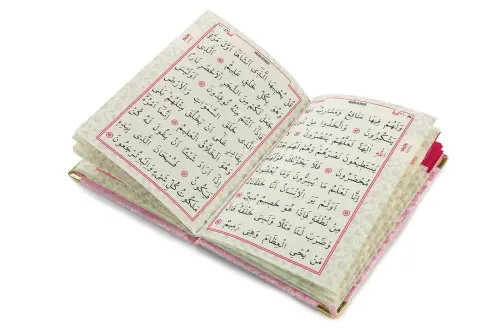 وَلَهُمْ فِيهَا مَنَافِعُ وَمَشَارِبُ اَفَلَا
يَشْكُرُونَ وَاتَّخَذُوا مِنْ دُونِ
اللّٰهِ اٰلِهَةً لَعَلَّهُمْ يُنْصَرُونَ لَا
يَسْتَطِيعُونَ نَصْرَهُمْ وَهُمْ لَهُمْ جُنْدٌ
مُحْضَرُونَ فَلَا يَحْزُنْكَ قَوْلُهُمْ
اِنَّا نَعْلَمُ مَا يُسِرُّونَ وَمَا يُعْلِنُونَ
اَوَلَمْ يَرَ الْاِنْسَانُ اَنَّا خَلَقْنَاهُ
مِنْ نُطْفَةٍ فَاِذَا هُوَ خَصِيمٌ مُبِينٌ
وَضَرَبَ لَنَا مَثَلًا وَنَسِيَ خَلْقَهُ قَالَ
مَنْ يُحْيِ الْعِظَامَ وَهِيَ رَمِيمٌ
قُلْ يُحْيِيهَا الَّذِي اَنْشَاَهَا اَوَّلَ مَرَّةٍ
وَهُوَ بِكُلِّ خَلْقٍ عَلِيمٌ الَّذِي
جَعَلَ لَكُمْ مِنَ الشَّجَرِ الْاَخْضَرِ نَارًا
فَاِذَا اَنْتُمْ مِنْهُ تُوقِدُونَ اَوَلَيْسَ
الَّذِي خَلَقَ السَّمٰوَاتِ وَالْاَرْضَ
بِقَادِرٍ عَلٰى اَنْ يَخْلُقَ مِثْلَهُمْ بَلٰى
وَهُوَ الْخَلَّاقُ الْعَلِيمُ اِنَّمَا اَمْرُهُ
اِذَا اَرَادَ شَيْئًا اَنْ يَقُولَ لَهُ كُنْ
فَيَكُونُ فَسُبْحَانَ الَّذِي بِيَدِهِ
مَلَكُوتُ كُلِّ شَيْءٍ وَاِلَيْهِ تُرْجَعُونَ